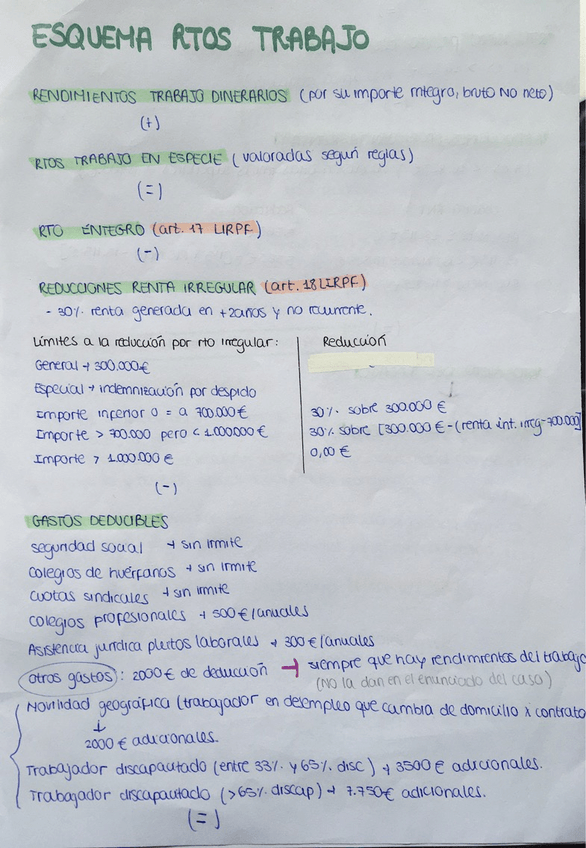 ESQUEMA RTOS TRABAJO
RENDIMIENTOS TRABAJO DINERARIOS (por su importe íntegro, bruto NO neto)
(+)
RTOS TRABAJO EN ESPECIE (valoradas según reglas)
(=)
RTO ÍNTEGRO (art. 17 LIRPF)
(-)
REDUCCIONES RENTA IRREGULAR (art. 18 LIRPF)
- 30% renta generada en +2años y no recurrente.
Límites a la reducción por rto irregular: Reducción
General → 300.000€
Especial → indemnización por despido
Importe inferior o = a 700.000€ 30% sobre 300.000 €
Importe > 700.000 pero < 1.000.000 € 30% sobre [300.000 € - (renta int. irreg - 700.000)]
Importe > 1.000.000 € 0,00 €
(-)
GASTOS DEDUCIBLES
Seguridad social → sin límite
Colegios de huérfanos → sin límite
Cuotas sindicales → sin límite
Colegios profesionales → 500 €/anuales
Asistencia jurídica pleitos laborales → 300 €/anuales
Otros gastos: 2000€ de deducción → siempre que hay rendimientos del trabajo
(No la dan en el enunciado del caso)
Movilidad geográfica (trabajador en desempleo que cambia de domicilio x contrato
↓
2000 € adicionales.
Trabajador discapacitado (entre 33% y 65% disc) → 3500 € adicionales.
Trabajador discapacitado (>65% discap) → 7.750€ adicionales.
(=)